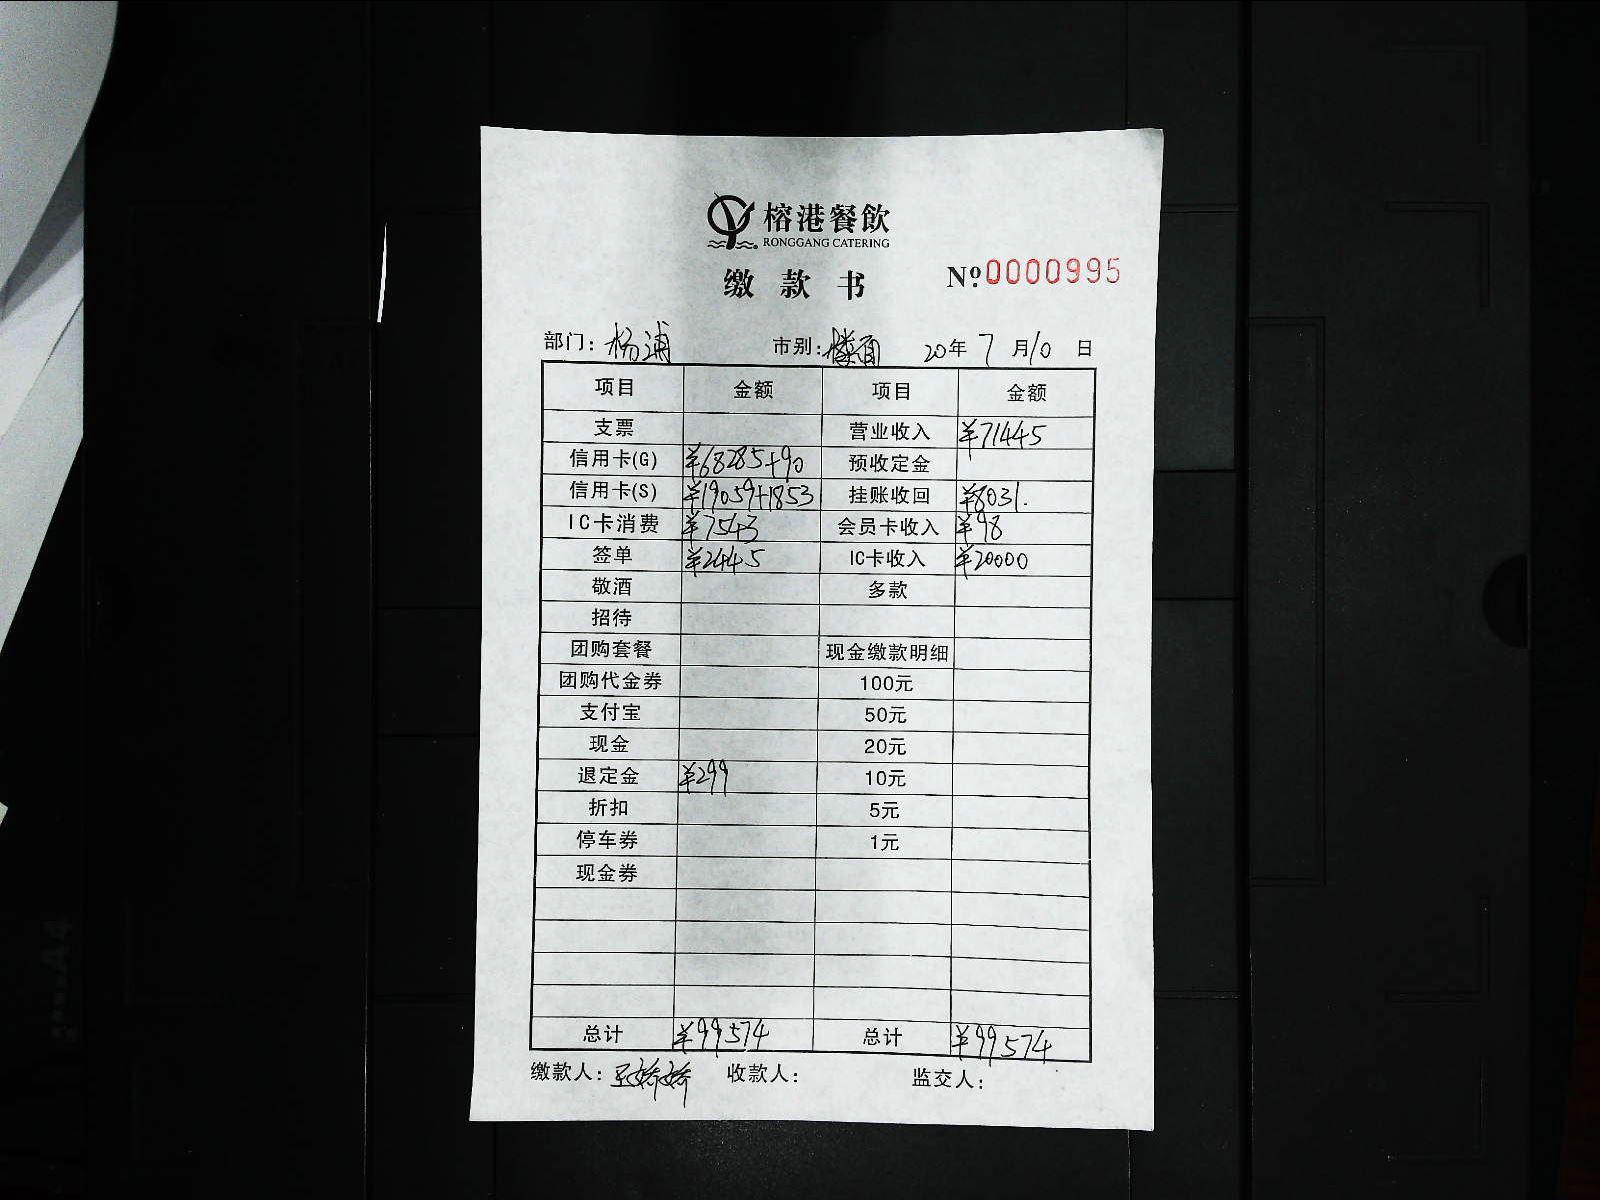 榕港餐飲
RONGGANG CATERING
缴款书 Nº 0000995
部门: 杨浦 市别: 楼面 20年 7月10日
项目 金额 项目 金额
支票 营业收入 ¥71445
信用卡(G) ¥68285+90 预收定金
信用卡(S) ¥19059+1853 挂账收回 ¥8031.
IC卡消费 ¥7543 会员卡收入 ¥98
签单 ¥2445 IC卡收入 ¥20000
敬酒 多款
招待
团购套餐 现金缴款明细
团购代金券 100元
支付宝 50元
现金 20元
退定金 ¥299 10元
折扣 5元
停车券 1元
现金券
总计 ¥99574 总计 ¥99574
缴款人: 娇娇 收款人: 监交人:
A4